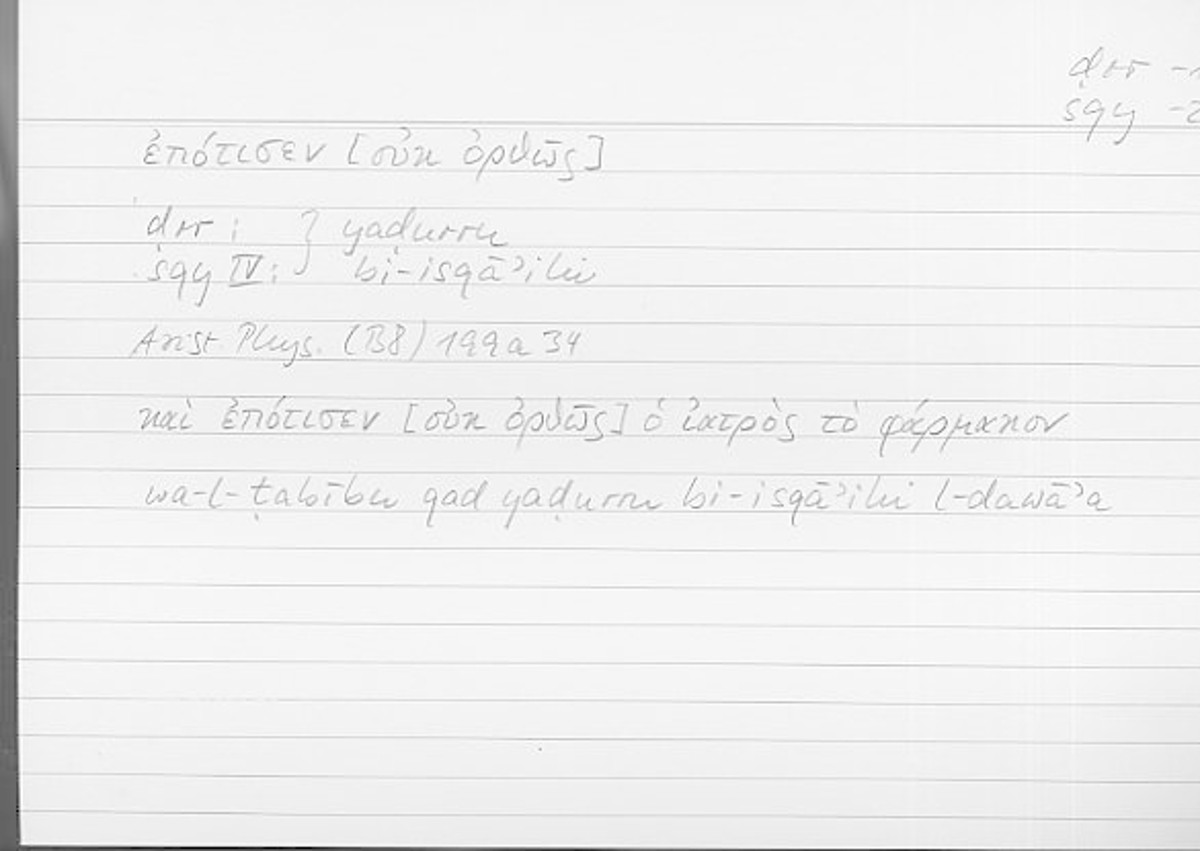 ḍrr -1
sqy -2
ἐπότισεν [οὐκ ὀρθῶς]
ḍrr : } yaḍurru
sqy IV : bi-isqāʾihi
Arist. Phys. (B8) 199a 34
καὶ ἐπότισεν [οὐκ ὀρθῶς] ὁ ἰατρὸς τὸ φάρμακον
wa-l-ṭabību qad yaḍurru bi-isqāʾihi l-dawāʾa